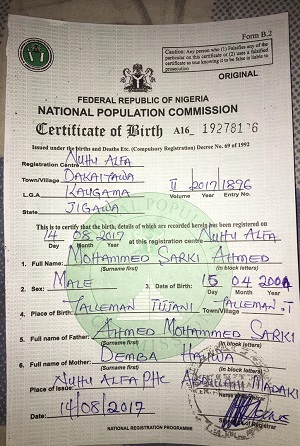 Form B.2
Caution: Any person who (1) Falsifies any of the particular on this certificate or (2) uses a falsified certificate as true knowing it to be false is liable to prosecution
ORIGINAL
FEDERAL REPUBLIC OF NIGERIA
NATIONAL POPULATION COMMISSION
Certificate of Birth A16_
Issued under the births and Deaths Etc. (Compulsory Registration) Decree No. 69 of 1992
Registration Centre NUHU ALFA
Town/Village DAKAIYAWA
L.G.A KAUGAMA II 2017 1896
Volume Year Entry No.
State JIGAWA
This is to certify that the birth, details of which are recorded herein has been registered on
14 08 2017 at this registration centre NUHU ALFA
Day Month Year
1. Full Name: MOHAMMED SARKI AHMED
(Surname first) (in block letters)
2. Sex: MALE 3. Date of Birth: 15 04
Day Month Year
4. Place of Birth: JALLEMAN TIJANI JALLEMAN .T
Town/Village
5. Full name of Father: AHMED MOHAMMED SARKI
(Surname first) (in block letters)
6. Full name of Mother: DEMBA
(Surname first) (in block letters)
Place of Issue: NUHU ALFA PHC MADAKI
Date: 14/08/2017
NATIONAL REGISTRATION PROGRAMME